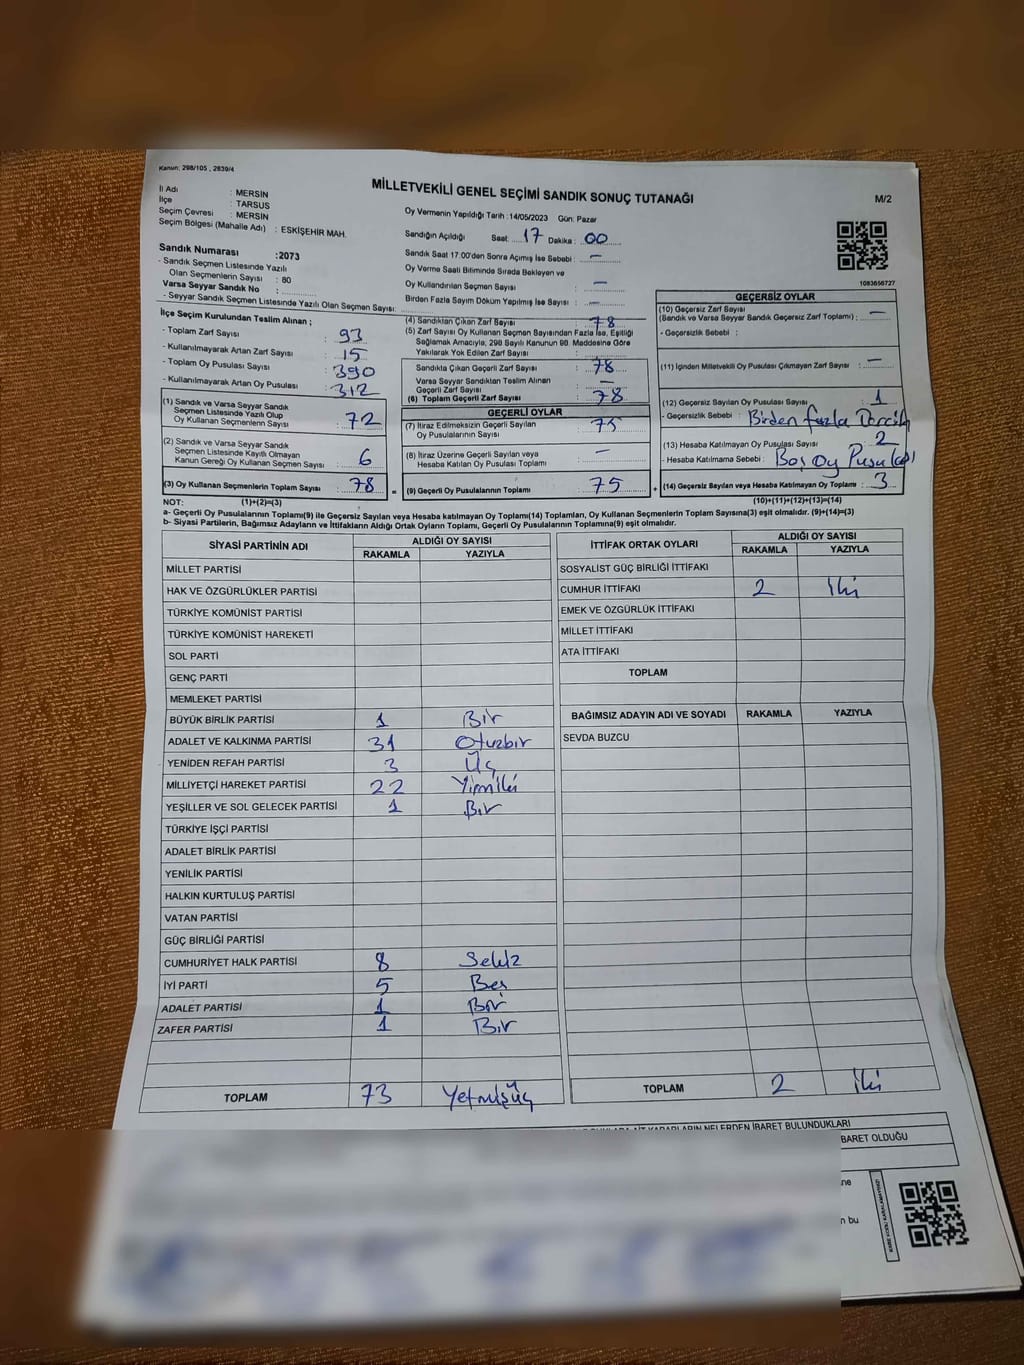 Kanun: 298/105 , 2839/4
MİLLETVEKİLİ GENEL SEÇİMİ SANDIK SONUÇ TUTANAĞI
M/2
İl Adı : MERSİN
İlçe : TARSUS
Seçim Çevresi : MERSİN
Seçim Bölgesi (Mahalle Adı) : ESKİŞEHİR MAH.
Sandık Numarası :2073
- Sandık Seçmen Listesinde Yazılı
Olan Seçmenlerin Sayısı : 80
Varsa Seyyar Sandık No :
- Seyyar Sandık Seçmen Listesinde Yazılı Olan Seçmen Sayısı:
Oy Vermenin Yapıldığı Tarih :14/05/2023 Gün: Pazar
Sandığın Açıldığı Saat: 17 Dakika: 00
Sandık Saat 17:00'den Sonra Açımış İse Sebebi : —
Oy Verme Saati Bitiminde Sırada Bekleyen ve
Oy Kullandırılan Seçmen Sayısı : —
Birden Fazla Sayım Döküm Yapılmış İse Sayısı : —
1083656727
İlçe Seçim Kurulundan Teslim Alınan ;
- Toplam Zarf Sayısı : 93
- Kullanılmayarak Artan Zarf Sayısı : 15
- Toplam Oy Pusulası Sayısı : 390
- Kullanılmayarak Artan Oy Pusulası : 312
(1) Sandık ve Varsa Seyyar Sandık
Seçmen Listesinde Yazılı Olup
Oy Kullanan Seçmenlerin Sayısı : 72
(2) Sandık ve Varsa Seyyar Sandık
Seçmen Listesinde Kayıtlı Olmayan
Kanun Gereği Oy Kullanan Seçmen Sayısı : 6
(3) Oy Kullanan Seçmenlerin Toplam Sayısı : 78 =
(4) Sandıktan Çıkan Zarf Sayısı : 78
(5) Zarf Sayısı Oy Kullanan Seçmen Sayısından Fazla İse, Eşitliği
Sağlamak Amacıyla, 298 Sayılı Kanunun 98. Maddesine Göre
Yakılarak Yok Edilen Zarf Sayısı :
Sandıkta Çıkan Geçerli Zarf Sayısı : 78
Varsa Seyyar Sandıktan Teslim Alınan
Geçerli Zarf Sayısı : —
(6) Toplam Geçerli Zarf Sayısı : 78
GEÇERLİ OYLAR
(7) İtiraz Edilmeksizin Geçerli Sayılan
Oy Pusulalarının Sayısı : 75
(8) İtiraz Üzerine Geçerli Sayılan veya
Hesaba Katılan Oy Pusulası Toplamı : —
(9) Geçerli Oy Pusulalarının Toplamı : 75 +
GEÇERSİZ OYLAR
(10) Geçersiz Zarf Sayısı
(Sandık ve Varsa Seyyar Sandık Geçersiz Zarf Toplamı) : —
- Geçersizlik Sebebi :
(11) İçinden Milletvekili Oy Pusulası Çıkmayan Zarf Sayısı : —
(12) Geçersiz Sayılan Oy Pusulası Sayısı : 1
- Geçersizlik Sebebi : Birden fazla Tercih
(13) Hesaba Katılmayan Oy Pusulası Sayısı : 2
- Hesaba Katılmama Sebebi : Boş Oy Pusulası
(14) Geçersiz Sayılan veya Hesaba Katılmayan Oy Toplamı : 3
NOT: (1)+(2)=(3)
(10)+(11)+(12)+(13)=(14)
a- Geçerli Oy Pusulalarının Toplamı(9) ile Geçersiz Sayılan veya Hesaba katılmayan Oy Toplamı(14) Toplamları, Oy Kullanan Seçmenlerin Toplam Sayısına(3) eşit olmalıdır. (9)+(14)=(3)
b- Siyasi Partilerin, Bağımsız Adayların ve İttifakların Aldığı Ortak Oyların Toplamı, Geçerli Oy Pusulalarının Toplamına(9) eşit olmalıdır.
SİYASİ PARTİNİN ADI ALDIĞI OY SAYISI
RAKAMLA YAZIYLA
MİLLET PARTİSİ
HAK VE ÖZGÜRLÜKLER PARTİSİ
TÜRKİYE KOMÜNİST PARTİSİ
TÜRKİYE KOMÜNİST HAREKETİ
SOL PARTİ
GENÇ PARTİ
MEMLEKET PARTİSİ
BÜYÜK BİRLİK PARTİSİ 1 Bir
ADALET VE KALKINMA PARTİSİ 31 Otuzbir
YENİDEN REFAH PARTİSİ 3 Üç
MİLLİYETÇİ HAREKET PARTİSİ 22 Yirmiiki
YEŞİLLER VE SOL GELECEK PARTİSİ 1 Bir
TÜRKİYE İŞÇİ PARTİSİ
ADALET BİRLİK PARTİSİ
YENİLİK PARTİSİ
HALKIN KURTULUŞ PARTİSİ
VATAN PARTİSİ
GÜÇ BİRLİĞİ PARTİSİ
CUMHURİYET HALK PARTİSİ 8 Sekiz
İYİ PARTİ 5 Beş
ADALET PARTİSİ 1 Bir
ZAFER PARTİSİ 1 Bir
TOPLAM 73 Yetmişüç
İTTİFAK ORTAK OYLARI ALDIĞI OY SAYISI
RAKAMLA YAZIYLA
SOSYALİST GÜÇ BİRLİĞİ İTTİFAKI
CUMHUR İTTİFAKI 2 İki
EMEK VE ÖZGÜRLÜK İTTİFAKI
MİLLET İTTİFAKI
ATA İTTİFAKI
TOPLAM
BAĞIMSIZ ADAYIN ADI VE SOYADI RAKAMLA YAZIYLA
SEVDA BUZCU
TOPLAM 2 İki
KARARLARIN NELERDEN İBARET BULUNDUKLARI
BARET OLDUĞU